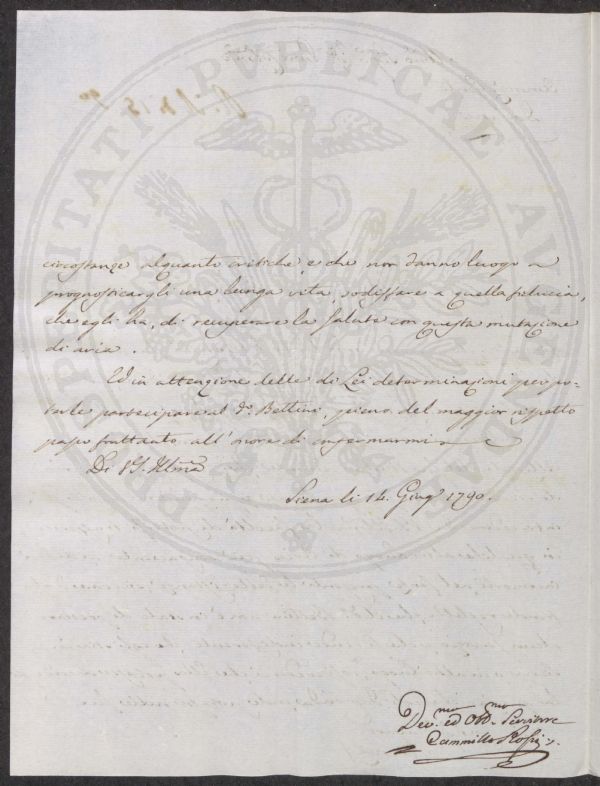 PUBLICAE
circostanze alquanto critiche, e che non danno luogo a
prognosticargli una lunga vita, sodisfare a quella fiducia,
che egli ha, di recuperare la salute con questa mutazione
di aria.
Ed in attenzione delle di Lei determinazioni per po-
terle partecipare al do. Bettini, pieno del maggior rispetto
passo frattanto all'onore di confermarmi
Di VS. Illma
Siena li 14. Giugo 1790.
Devmo ed Obbmo Servitore
Cammillo